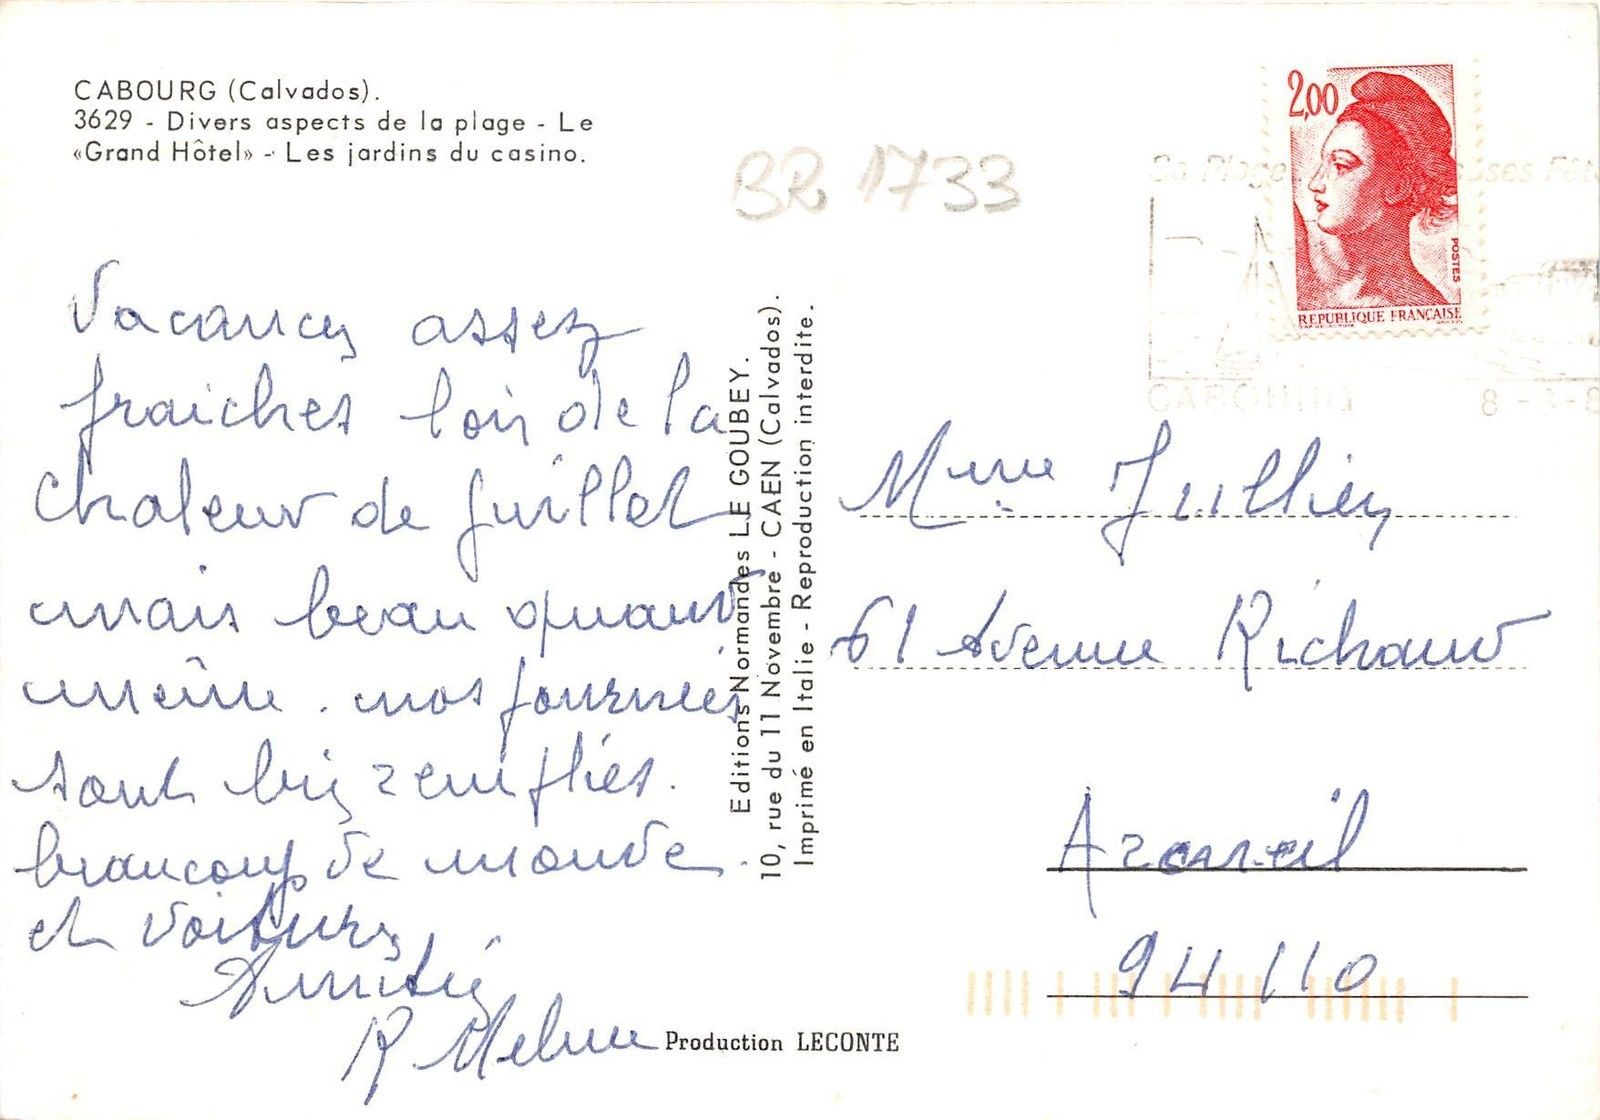 CABOURG (Calvados).
3629 - Divers aspects de la plage - Le
«Grand Hôtel» - Les jardins du casino.
BR 1733
2,00
POSTES
REPUBLIQUE FRANÇAISE
CABOURG
Vacances assez
fraiches loin de la
chaleur de Juillet
mais beau quand
même. nos journées
sont bien remplies.
beaucoup de monde.
et voitures
Amitiés
Editions Normandes LE GOUBEY.
10, rue du 11 Novembre - CAEN (Calvados).
Imprimé en Italie - Reproduction interdite.
Mme Jullien
61 Avenue Richaud
Arcueil
94110
Production LECONTE